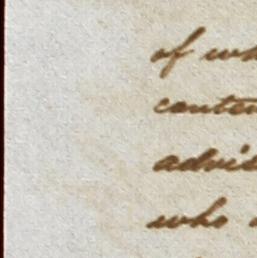 of wh
conten
advis
who